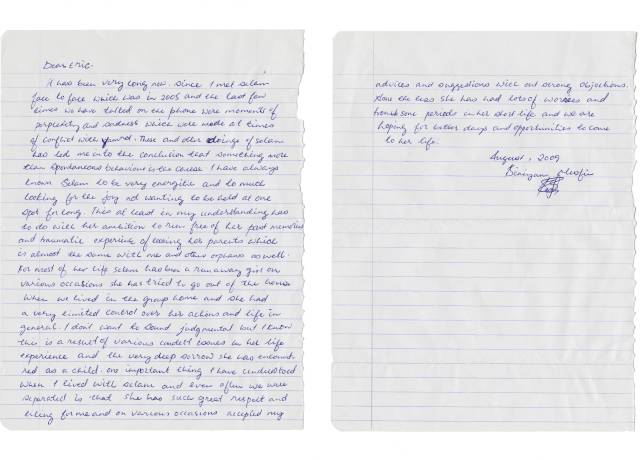 Dear Eric.
It has been very long now. Since I met Selam
face to face which was in 2005 and the last few
times we have talked on the phone were moments of
perplexity and sadness which were made at times
of conflict with you. These and other doings of selam
has led me into the conclusion that something more
than spontaneous behaviour is the cause. I have always
known Selam to be very energetic and to much
looking for the joy not wanting to be held at one
spot for long. This at least in my understanding has
to do with her ambition to run free of her past memories
and traumatic experience of loosing her parents which
is almost the same with me and other orphans as well.
For most of her life selam has been a run away girl on
various occasions she has tried to go out of the home
when we lived in the group home and she had
a very limited control over her actions and life in
general. I dont want to sound judgmental but I know
this is a result of various in her life
experience and the very deep sorrow she was encount
red as a child. one important thing I have understood
when I lived with selam and even after we were
separated is that she has such great respect and
for me and on various occasions accepted my
advices and suggestions with out strong objections.
she has had lots of worries and
periods in her short life and we are
hoping for better days and opportunities to come
to her life.
August, 2009
Biniyam